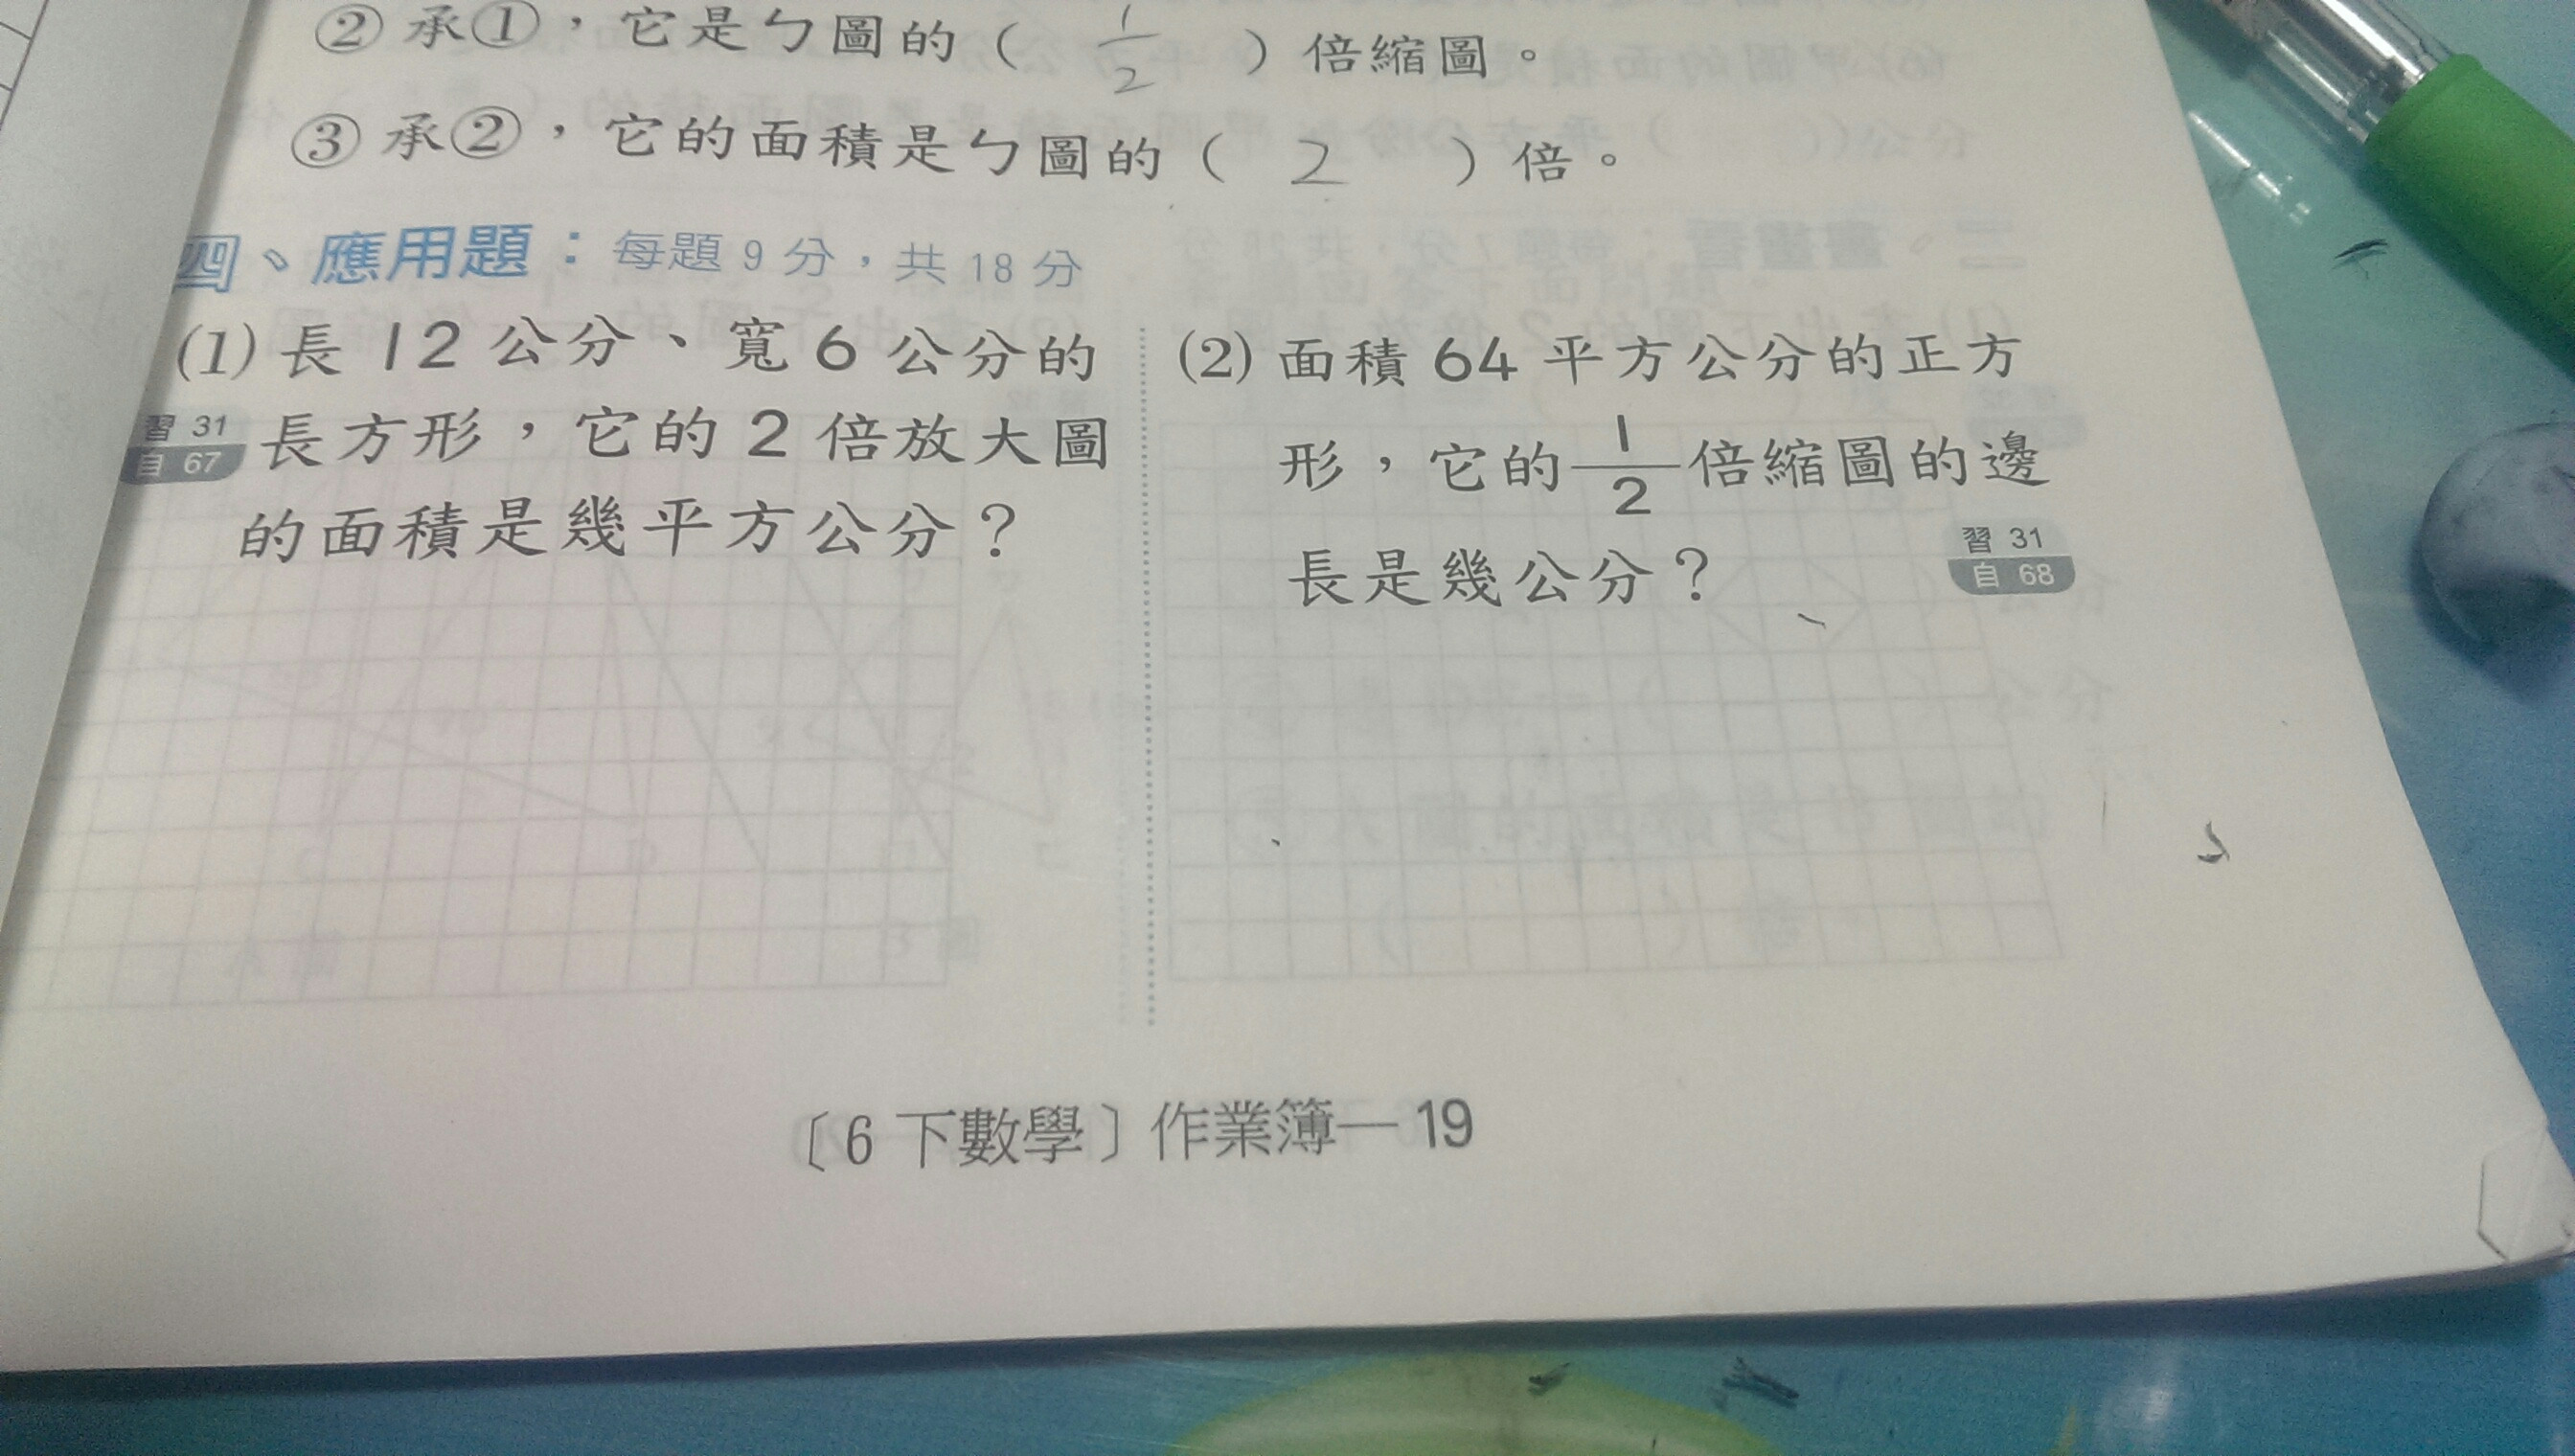 ②承①，它是ㄅ圖的（ 1/2 ）倍縮圖。
③承②，它的面積是ㄅ圖的（ 2 ）倍。
四、應用題：每題9分，共18分
(1)長12公分、寬6公分的
長方形，它的2倍放大圖
的面積是幾平方公分？
習 31
自 67
(2)面積64平方公分的正方
形，它的1/2倍縮圖的邊
長是幾公分？
習 31
自 68
〔6下數學〕作業簿—19